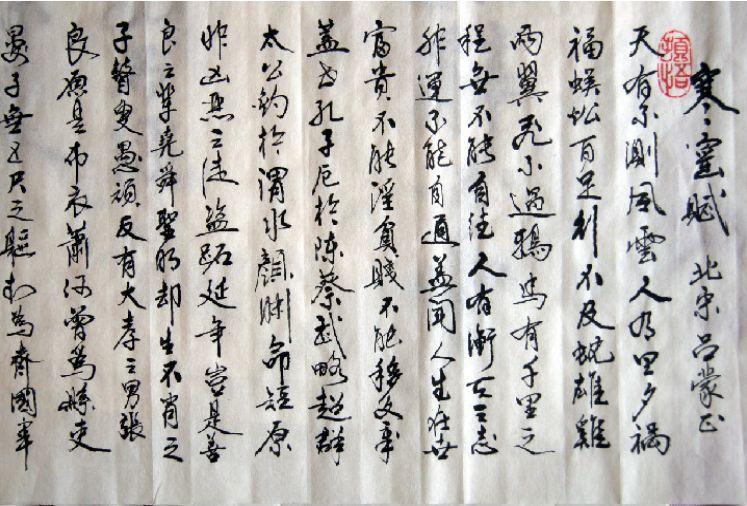 寒窑赋 北宋吕蒙正
天有不測風雲人有旦夕禍
福蜈蚣百足行不及蛇雄雞
兩翼飛不過鴉馬有千里之
程無不能自往人有衝天之志
非運不能自通盖聞人生在世
富貴不能淫貧賤不能移文章
盖世孔子厄於陈蔡武略超群
太公钓於渭水顏淵命短原
非凶惡之徒盗跖延年豈是善
良之輩堯舜聖明却生不肖之
子瞽叟愚頑反有大孝之男張
良原是布衣蕭何曾為縣吏
晏子無五尺之軀封為齊國宰